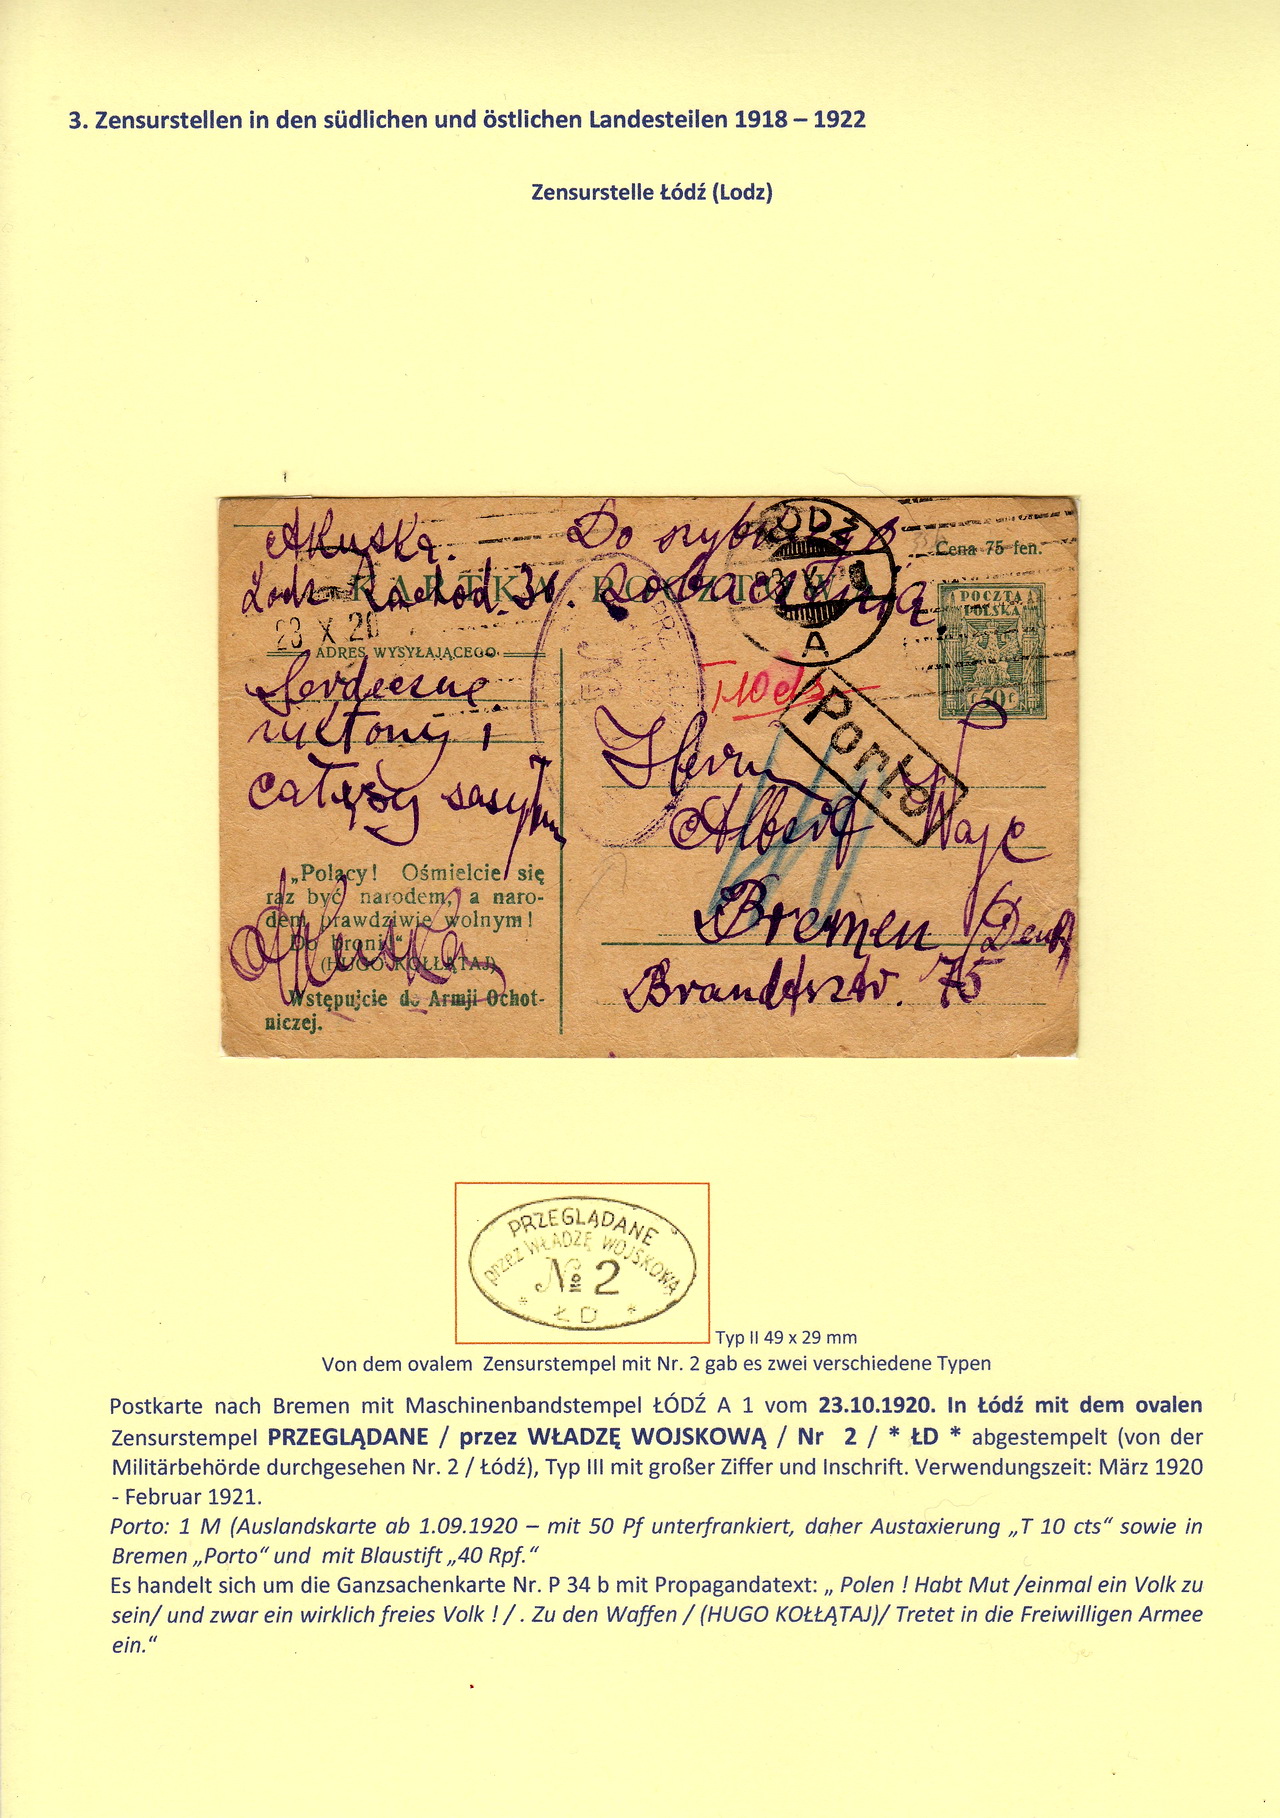 3. Zensurstellen in den südlichen und östlichen Landesteilen 1918 – 1922
Zensurstelle Łódź (Lodz)
Do
ŁÓDŹ
A
Cena 75 fen.
KARTKA POCZTOWA
POCZTA
POLSKA
50 f
23 X 20
ADRES WYSYŁAJĄCEGO
Serdeczne
i
T 10 cts
Porto
Herrn
Albert
Bremen
75
„Polacy! Ośmielcie się
raz być narodem, a naro-
dem prawdziwie wolnym!
Do broni!“
(HUGO KOŁŁĄTAJ)
Wstępujcie do Armji Ochot-
niczej.
PRZEGLĄDANE
przez WŁADZĘ WOJSKOWĄ
№ 2
* ŁD *
Typ II 49 x 29 mm
Von dem ovalem Zensurstempel mit Nr. 2 gab es zwei verschiedene Typen
Postkarte nach Bremen mit Maschinenbandstempel ŁÓDŹ A 1 vom 23.10.1920. In Łódź mit dem ovalen
Zensurstempel PRZEGLĄDANE / przez WŁADZĘ WOJSKOWĄ / Nr 2 / * ŁD * abgestempelt (von der
Militärbehörde durchgesehen Nr. 2 / Łódź), Typ III mit großer Ziffer und Inschrift. Verwendungszeit: März 1920
- Februar 1921.
Porto: 1 M (Auslandskarte ab 1.09.1920 – mit 50 Pf unterfrankiert, daher Austaxierung „T 10 cts“ sowie in
Bremen „Porto“ und mit Blaustift „40 Rpf.“
Es handelt sich um die Ganzsachenkarte Nr. P 34 b mit Propagandatext: „ Polen ! Habt Mut /einmal ein Volk zu
sein/ und zwar ein wirklich freies Volk ! /. Zu den Waffen / (HUGO KOŁŁĄTAJ)/ Tretet in die Freiwilligen Armee
ein.“